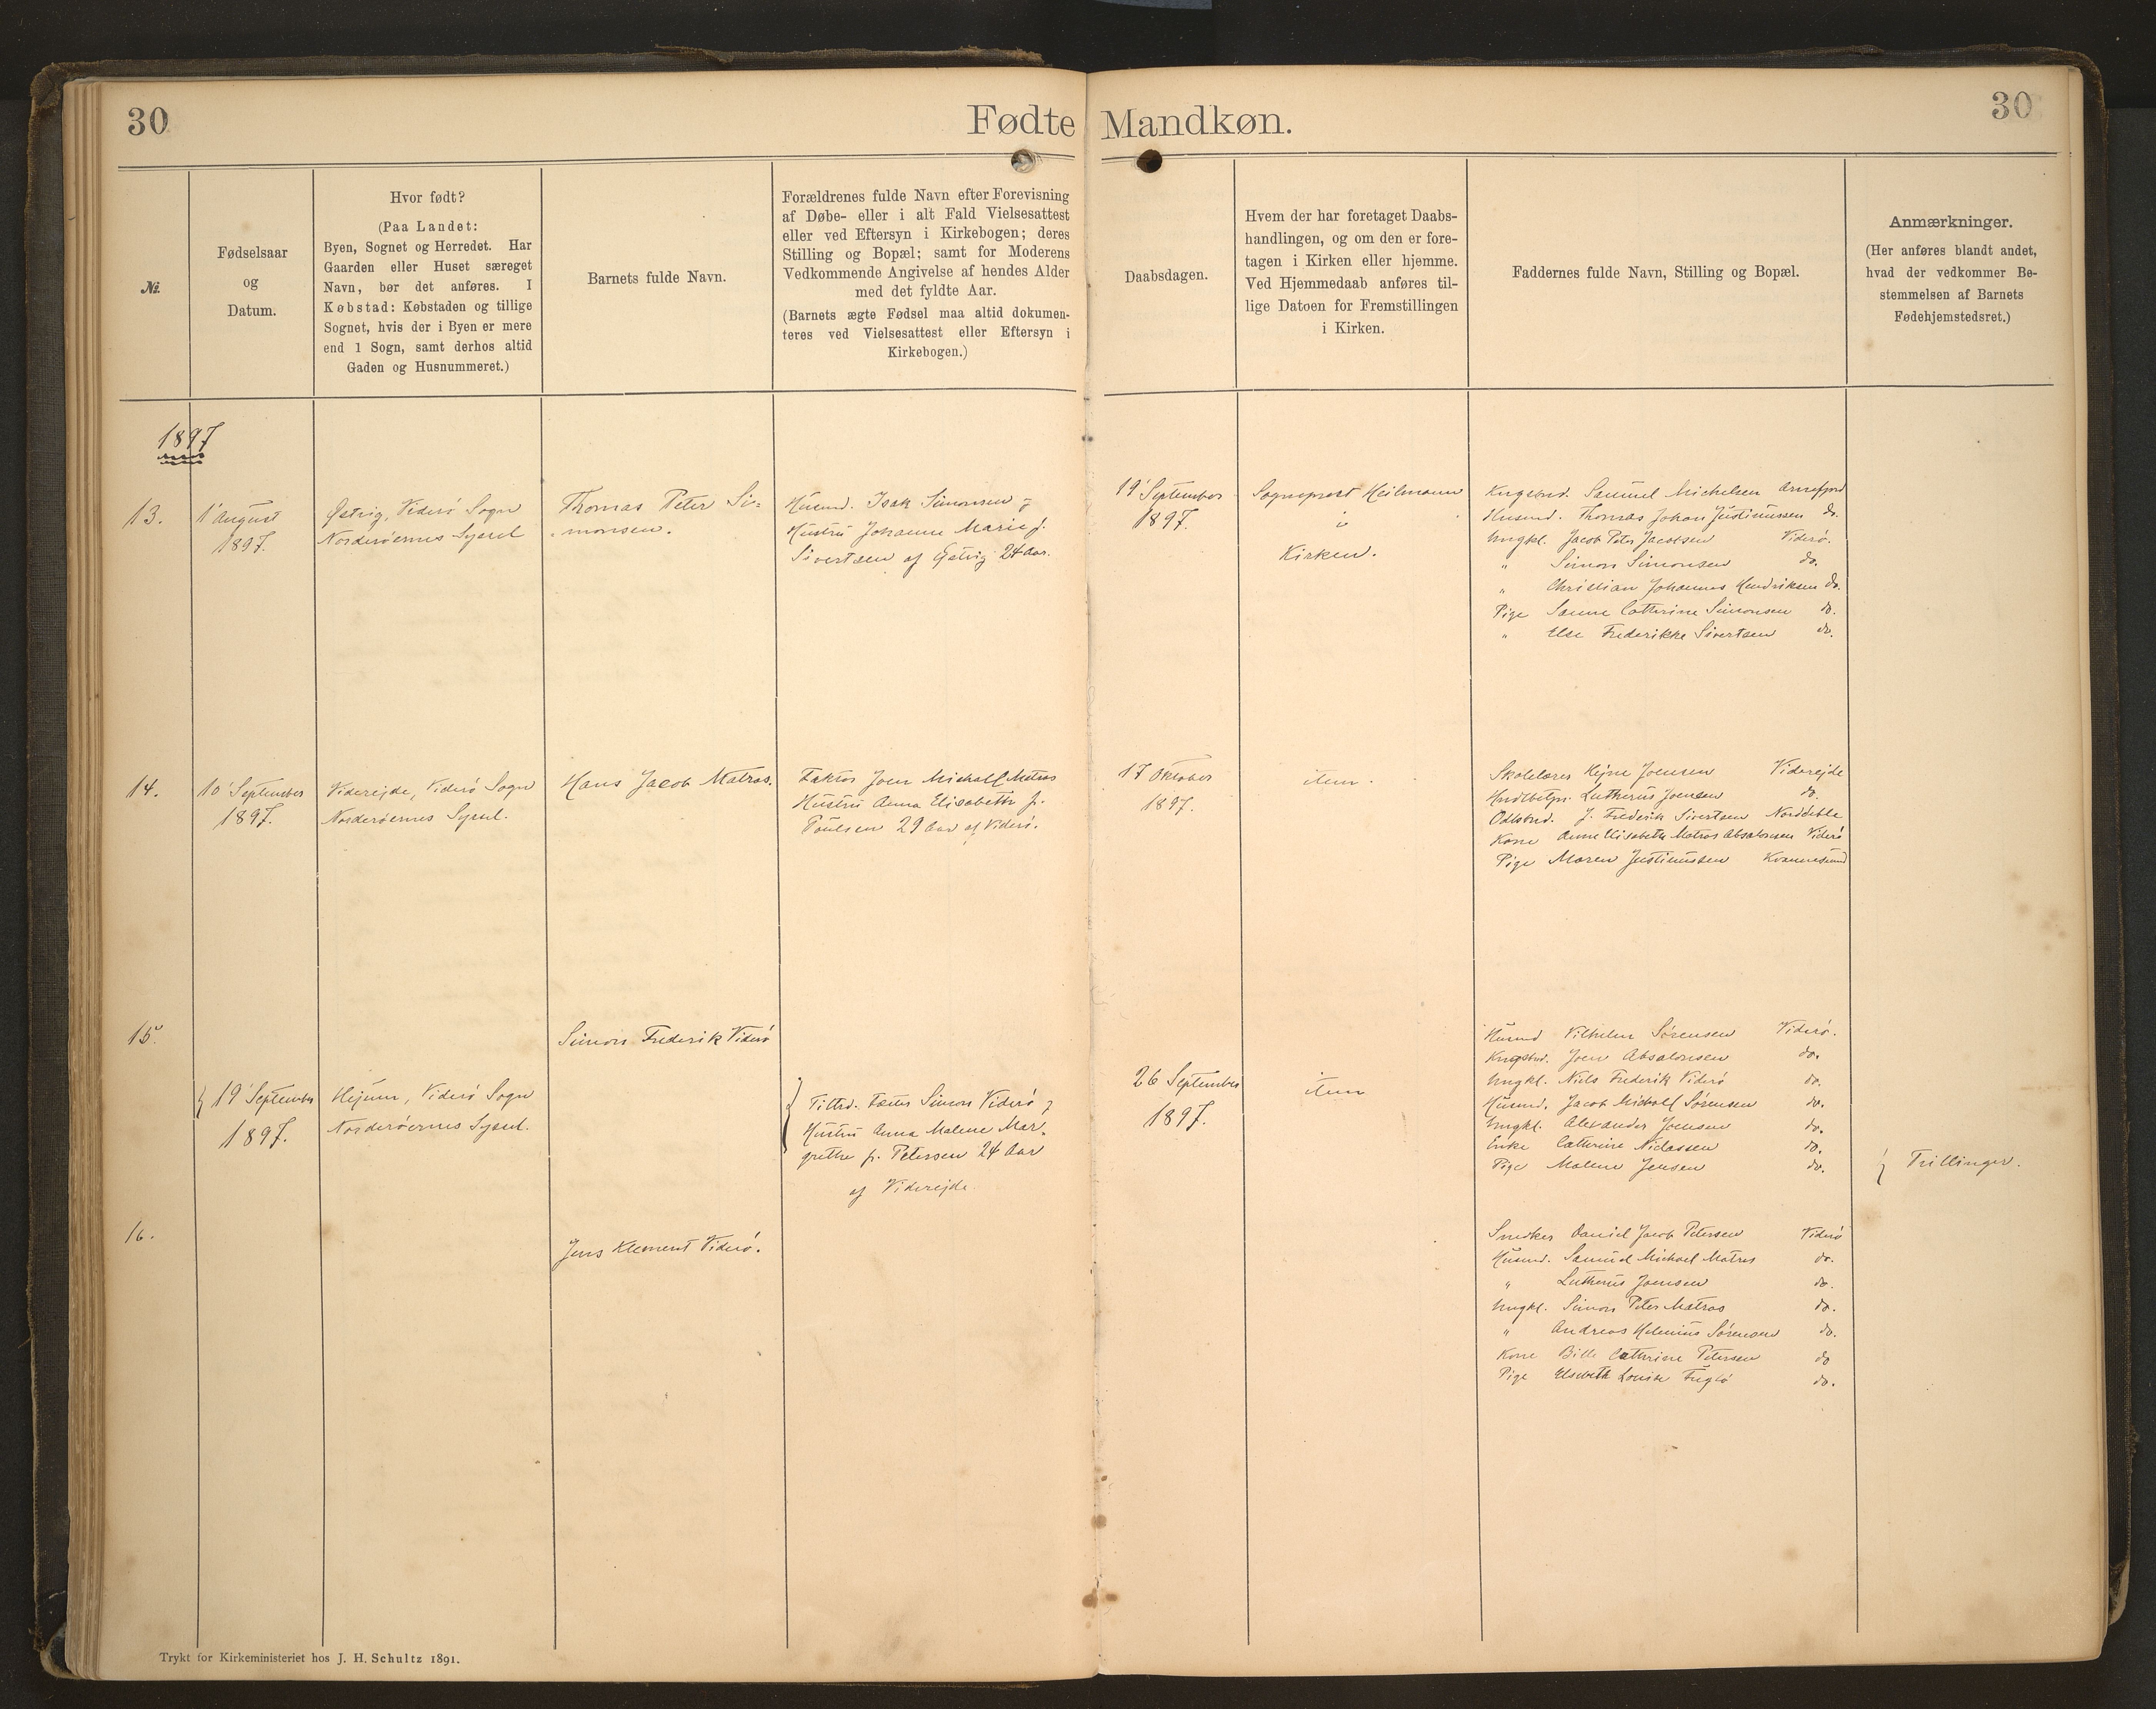 30
Fødte Mandkøn.
30
№.
Fødselsaar
og
Datum.
Hvor født?
(Paa Landet:
Byen, Sognet og Herredet. Har
Gaarden eller Huset særeget
Navn, bør det anføres. I
Købstad: Købstaden og tillige
Sognet, hvis der i Byen er mere
end 1 Sogn, samt derhos altid
Gaden og Husnummeret.)
Barnets fulde Navn.
Forældrenes fulde Navn efter Forevisning
af Døbe- eller i alt Fald Vielsesattest
eller ved Eftersyn i Kirkebogen; deres
Stilling og Bopæl; samt for Moderens
Vedkommende Angivelse af hendes Alder
med det fyldte Aar.
(Barnets ægte Fødsel maa altid dokumen-
teres ved Vielsesattest eller Eftersyn i
Kirkebogen.)
Daabsdagen.
Hvem der har foretaget Daabs-
handlingen, og om den er fore-
tagen i Kirken eller hjemme.
Ved Hjemmedaab anføres til-
lige Datoen for Fremstillingen
i Kirken.
Faddernes fulde Navn, Stilling og Bopæl.
Anmærkninger.
(Her anføres blandt andet,
hvad der vedkommer Be-
stemmelsen af Barnets
Fødehjemstedsret.)
1897
13.
1 August
1897.
Qstvig, Viderø Sogn
Norderøernes Syssel
Thomas Peter Si=
monsen.
Husmd. Isak Simonsen &
Hustru Johanne Marie f.
Sivertsen af 24 Aar.
19 September
1897.
Sognepræst Heilmann
i
Kirken.
Kngsbnd. Samuel Michelsen Arnefjord
Husmd. Thomas Johan Justinussen do.
Ungkl. Jacob Peter Jacobsen Viderø.
" Simon Simonsen do.
" Christian Johannes Hendriksen do.
Pige Sanne Cathrine Simonsen do.
" Else Frederikke Sivertsen do.
14.
10 September
1897.
Viderejde, Viderø Sogn
Norderøernes Syssel.
Hans Jacob Matras.
Faktor Joen Michall Matras
Hustru Anna Elisabeth f.
Poulsen 29 Aar af Viderø.
17 Oktober
1897.
item.
Skolelærer Hejne Joensen Viderejde
Hndlbetjn. Lutherus Joensen do.
Odlsbnd. J. Frederik Sivertsen Norddeble
Kone Anne Elisabeth Matras Absalonsen Viderø
Pige Maren Justinussen Kvannesund
15.
Simon Frederik Viderø
19 September
1897.
Hejum, Viderø Sogn
Norderøernes Syssel.
Tiltrd. Fæster Simon Viderø &
Hustru Anna Malene Mar-
grethe f. Petersen 24 Aar
af Viderejde.
26 September
1897.
item
Husmd Vilhelm Sørensen Viderø.
Kngsbnd. Joen Absalonsen do.
Ungkl. Niels Frederik Viderø do.
Husmd. Jacob Michall Sørensen do.
Ungkl. Alexander Joensen do.
Enke Cathrine Niclassen do.
Pige Malene Jensen do.
Trillinger.
16.
Jens Klement Viderø.
Snedker Daniel Jacob Petersen Viderø
Husmd. Samuel Michael Matras do.
" Lutherus Joensen do.
Ungkl. Simon Peter Matras do.
" Andreas Helenius Sørensen do.
Kone Bille Cathrine Petersen do
Pige Elsebeth Louise Fuglø do.
Trykt for Kirkeministeriet hos J. H. Schultz 1891.